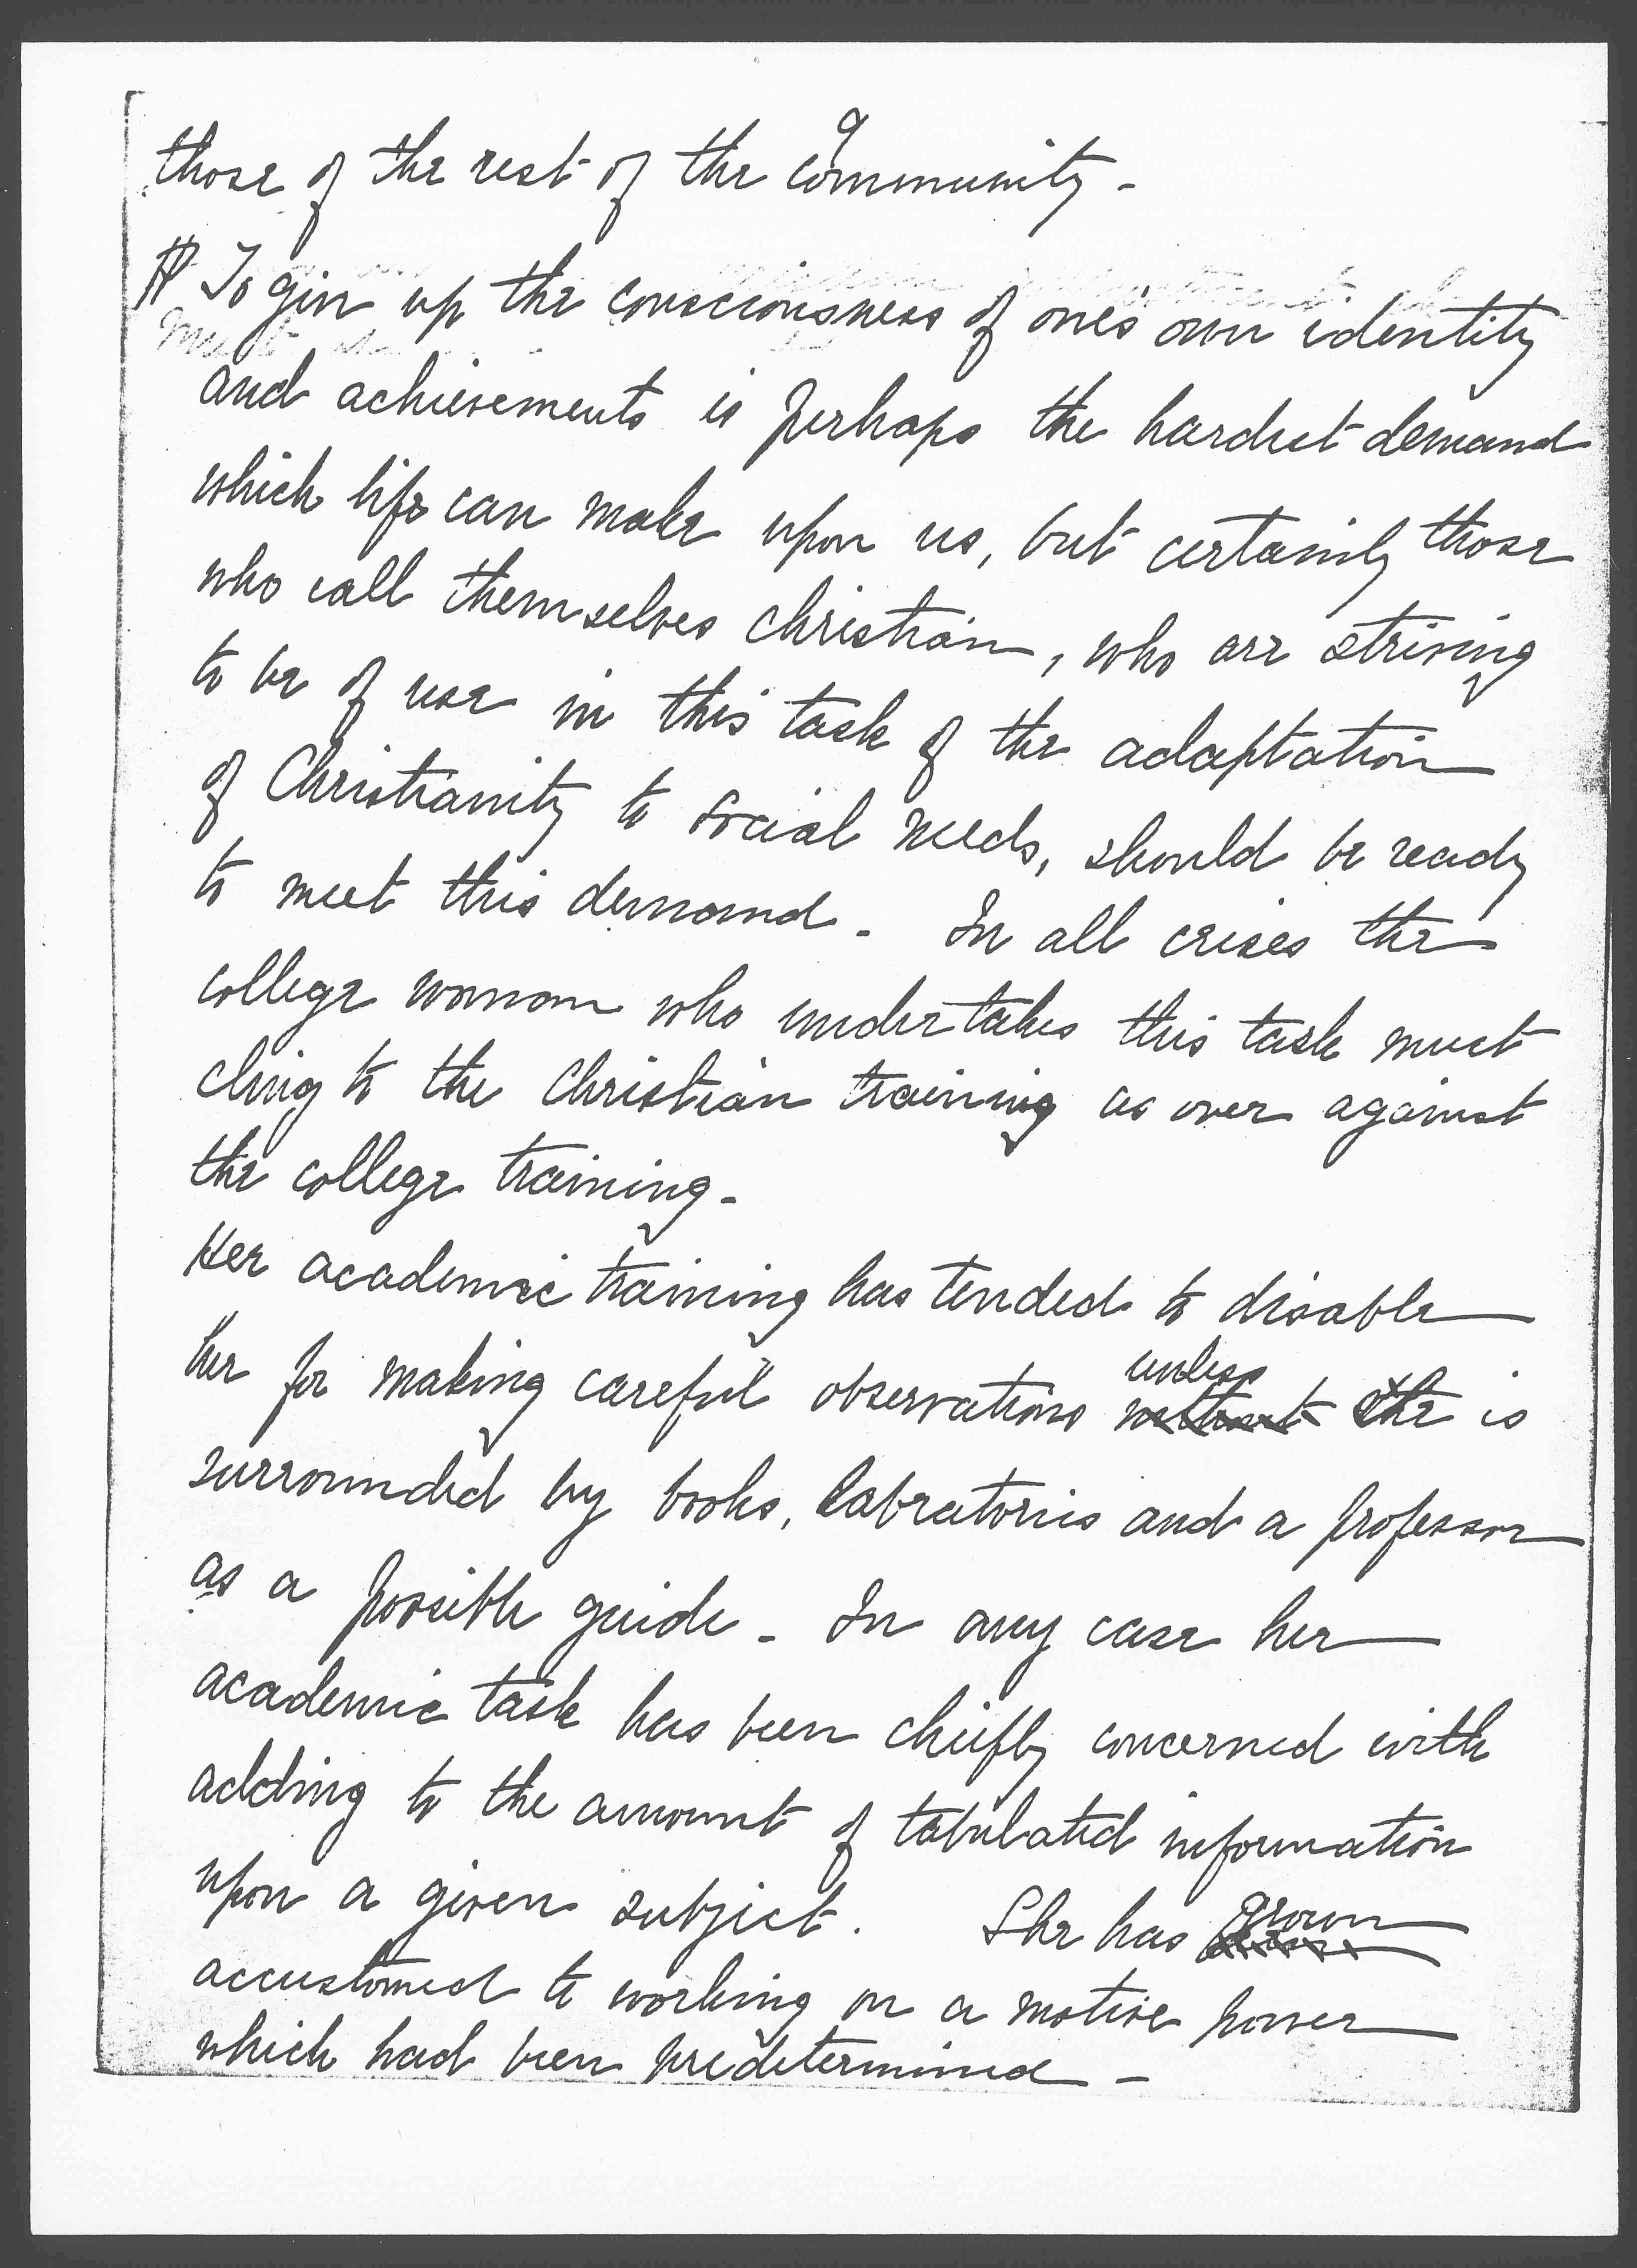 9
those of the rest of the community -
¶ To give up the consciousness of one's own identity
and achievements is perhaps the hardest demand
which life can make upon us, but certainly those
who call themselves christian, who are striving
to be of use in this task of the adaptation
of Christianity to social needs, should be ready
to meet this demand - In all crises the
college woman who undertakes this task must
cling to the Christian training as over against
the college training -
Her academic training has tended to disable
unless
her for making careful observations without she is
surrounded by books, labratories and a professor
as a possible guide - In any case her
academic task has been chiefly concerned with
adding to the amount of tabulated information
grown
upon a given subject. She has
accustomed to working on a motive power
which had been predetermined -